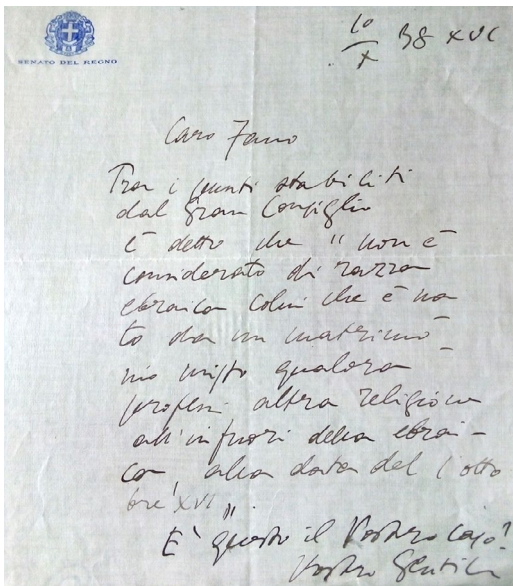 SENATO DEL REGNO
10/X 38 XVI
Caro Fano
Tra i punti stabiliti
dal Gran Consiglio
è detto che "non è
considerato di razza
ebraica colui che è na
to da un matrimo-
nio misto qualora
professi altra religione
all'infuori della ebrai-
ca, alla data del 1 otto
bre XVI".
E' questo il Vostro caso?
Vostro Gentile